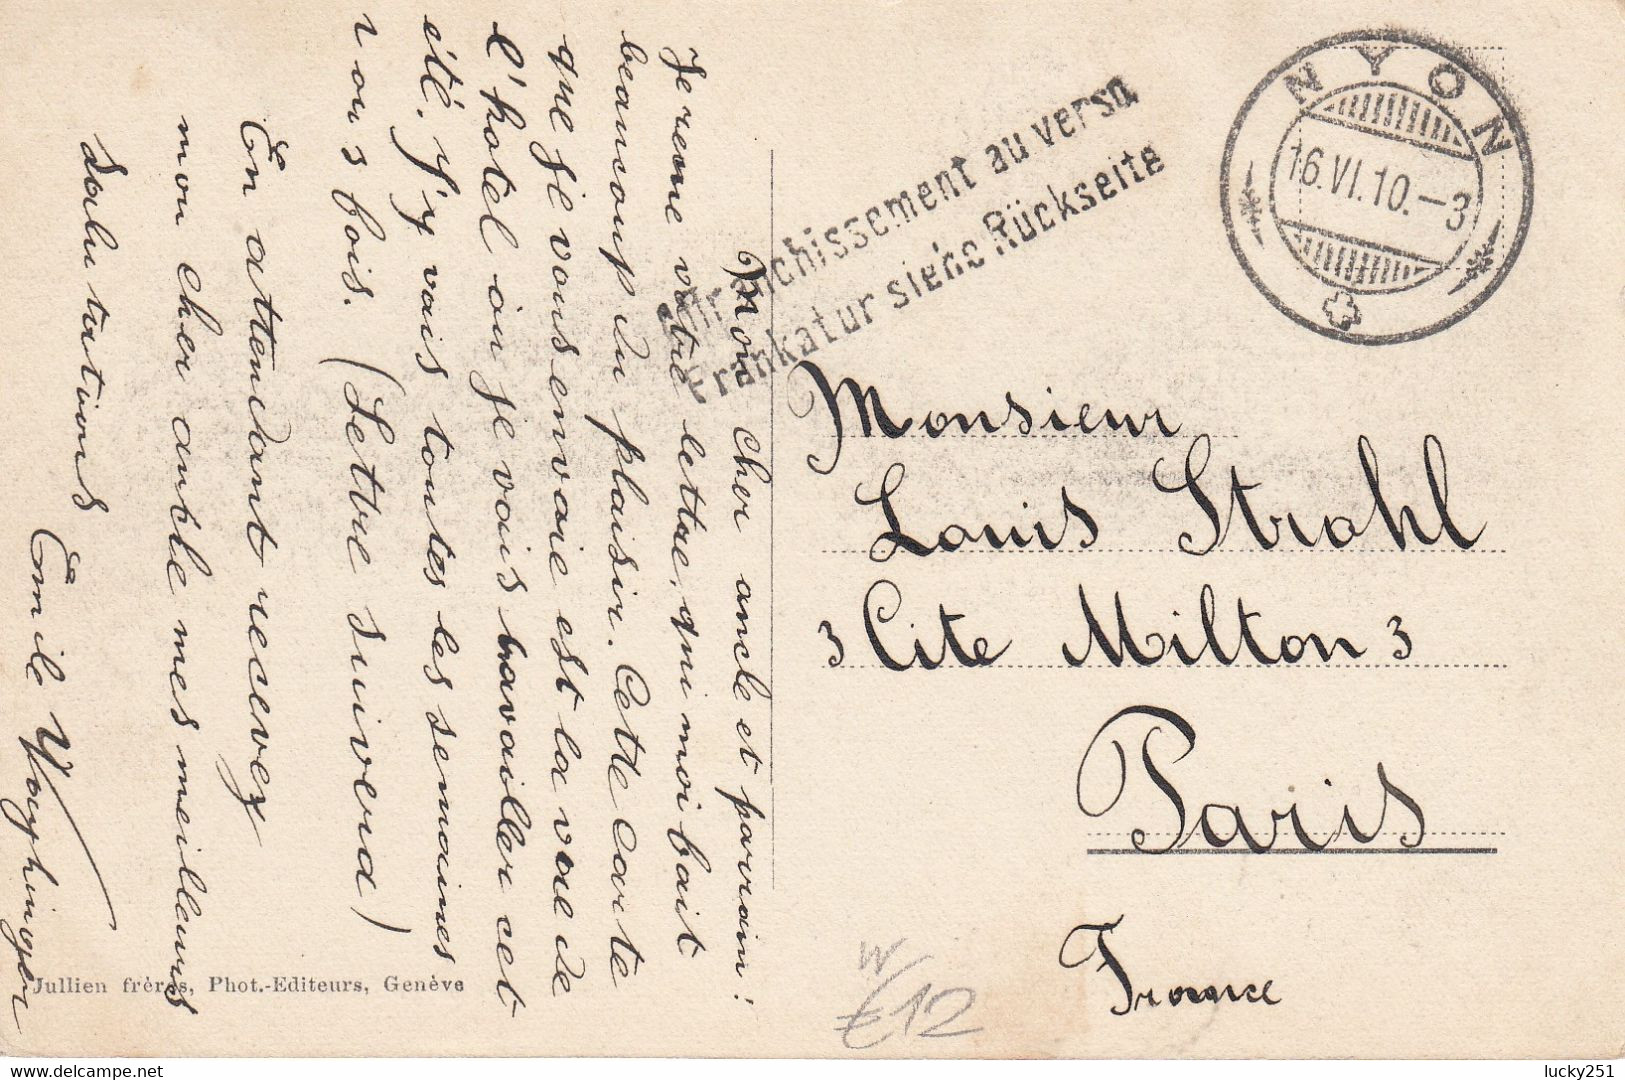 Mon cher oncle et parrain :
Je reçue votre lettre, qui moi fait
beaucoup du plaisir. Cette carte
que je vous envoie est la vue de
l'hotel ou je vais travailler cet
été. J'y vais toutes les semaines
fois. (Lettre suivera)
En attendant recevez
mon cher onkle mes meilleures
salutations
Emile
Jullien frères, Phot.-Editeurs, Genève
Affranchissement au verso
Frankatur siehe Rückseite
NYON
16.VI.10.-3
Monsieur
Louis Strahl
3 Cite Milton 3
Paris
France
€12
www.delcampe.net
lucky251